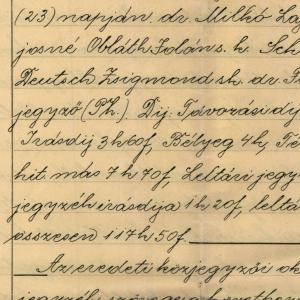 (23) napján. dr. Milkó La
josné Obláth Ilona s. k. Sch
Deutsch Zsigmond sk. dr.
jegyző (P.h.) Díj: Távozási díj
Irásdíj 3 h 60 f, Bélyeg 4 h,
hit. más 7 h 70 f, Leltári jegy
jegyzék irásdija 1 h 20 f, leltá
összesen 117 h 50 f.
Az eredeti közjegyzői ok